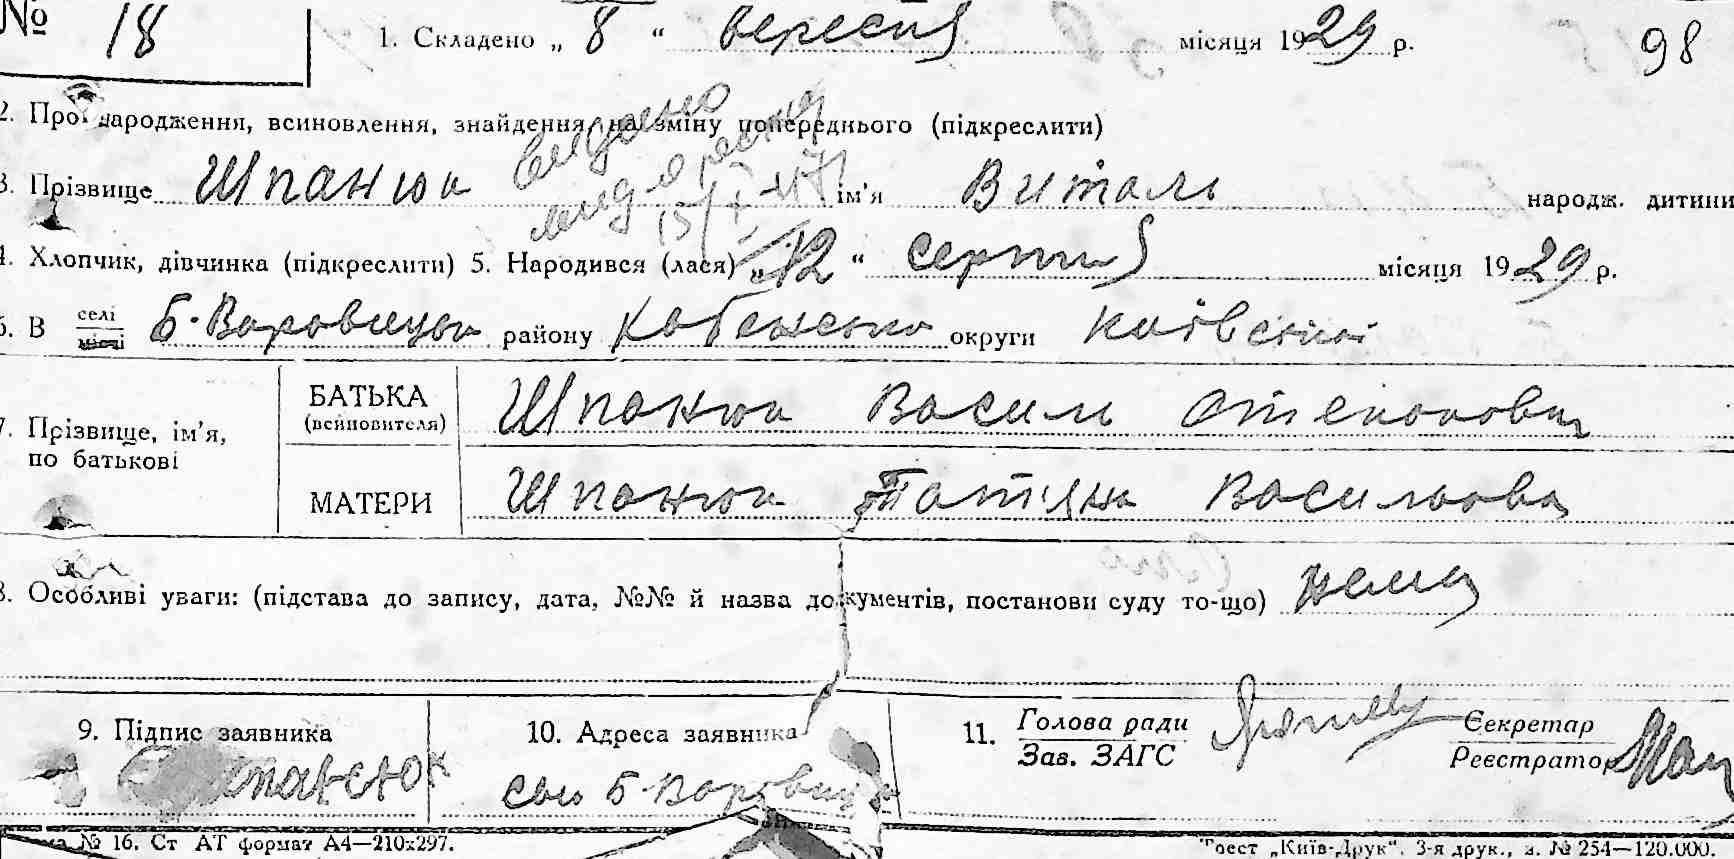 № 18 1. Складено „ 8 “ вересня місяця 1929 р. 98
2. Про народження, всиновлення, знайдення, на зміну попереднього (підкреслити)
видано
3. Прізвище Шпанюк ім'я Виталь народж. дитини
4. Хлопчик, дівчинка (підкреслити) 5. Народився (лася) „ 12 “ серпня місяця 1929 р.
6. В селі місті Б-Воровицьк району округи Київської
7. Прізвище, ім'я, по батькові
БАТЬКА (всиновителя) Шпанюк Василь Степанович
МАТЕРИ Шпанюк Татіяна Васильовна
8. Особливі уваги: (підстава до запису, дата, №№ й назва документів, постанови суду то-що) нема
9. Підпис заявника 10. Адреса заявника 11. Голова ради Зав. ЗАГС Секретар Реєстратор
село
№ 16. Ст АТ формат А4—210x297. Трест „Київ-Друк“. 3-я друк., з. № 254—120.000.